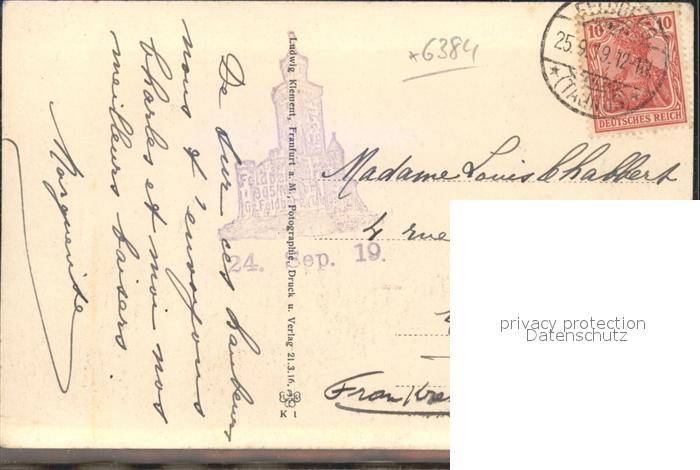 De sur ces hauteurs
nous t'envoyons
Charles et moi nos
meilleurs baisers.
Marguerite
Ludwig Klement, Frankfurt a. M., Photographie, Druck u. Verlag 21.3.16.
K 1
*6384
24. Sep. 19.
25.9.19.12-1
*(TAUNUS)*
10 10
DEUTSCHES REICH
Madame Louis Chabbert
4 rue
Frankre
privacy protection
Datenschutz